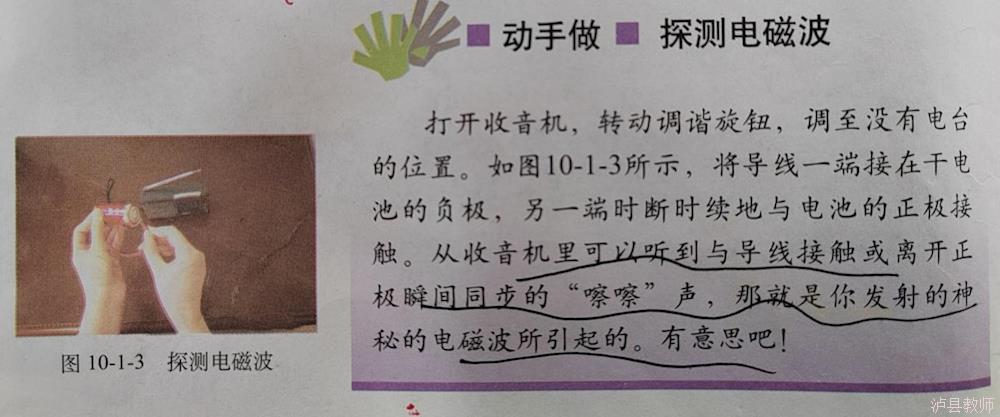 ■ 动手做 ■ 探测电磁波
打开收音机，转动调谐旋钮，调至没有电台
的位置。如图10-1-3所示，将导线一端接在干电
池的负极，另一端时断时续地与电池的正极接
触。从收音机里可以听到与导线接触或离开正
极瞬间同步的“嚓嚓”声，那就是你发射的神
秘的电磁波所引起的。有意思吧！
图 10-1-3 探测电磁波
泸县教师